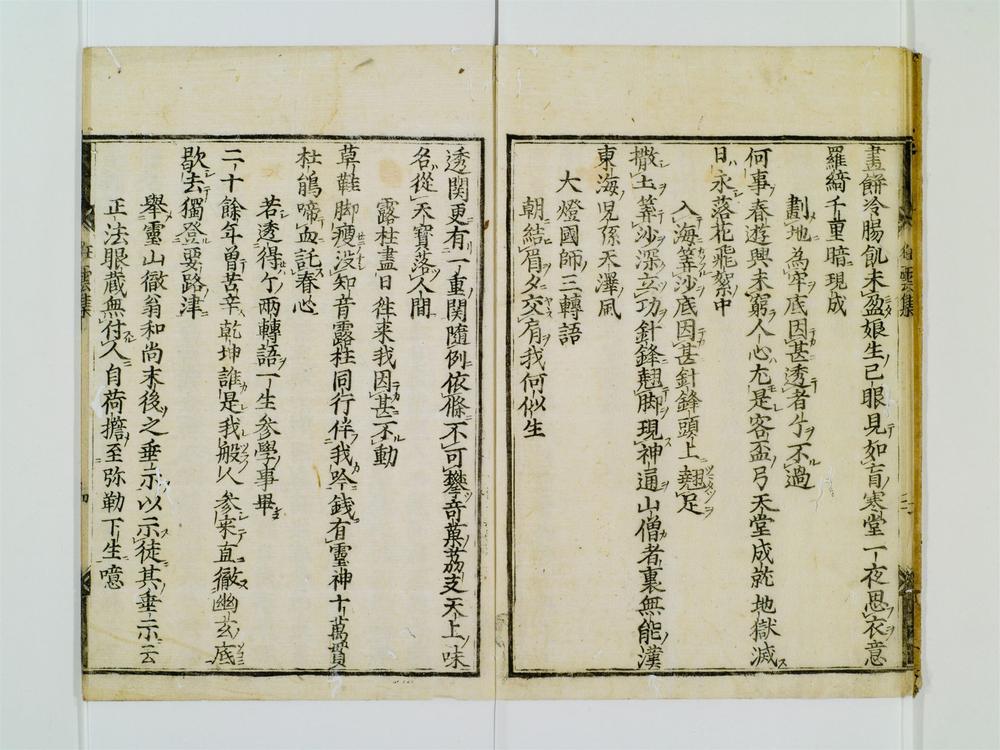 畫餅冷腸飢未盈娘生己眼見如盲寒堂一夜思衣意
羅綺千重暗現成
劃地為牢底因甚透者个不過
何事春遊興未窮人心尤是客盃弓天堂成就地獄滅
日永落花飛絮中
入海筭沙底因甚針鋒頭上翹足
撒土筭沙深立功針鋒翹脚現神通山僧者裏無能漢
東海児孫天澤風
大燈國師三轉語
朝結眉夕交肩我何似生
透関更有一重関隨例依條不可攀奇菓茘支天上味
名從天寶落人間
露柱盡日徃来我因甚不動
草鞋脚瘦没知音露柱同行伴我吟錢有靈神十萬貫
杜鵑啼血託春心
若透得个兩轉語一生参學事畢
二十餘年曽苦辛乾坤誰是我般人参来直徹幽玄底
歇去獨登要路津
舉靈山徹翁和尚末後之垂示以示徒其垂示云
正法眼蔵無付人自荷擔至弥勒下生噫
狂雲集